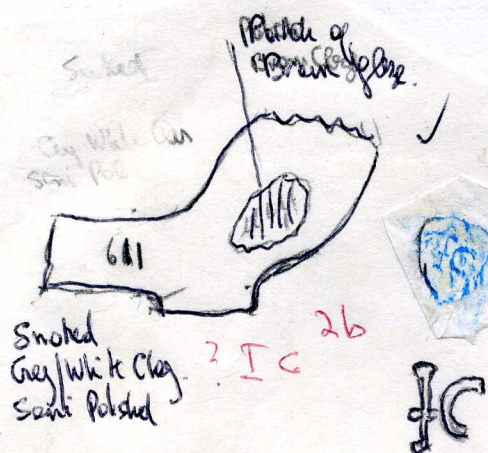 Patch of
Brown Clay/glaze.
Smoked
Grey White Clay
Semi Pol
611
Smoked
Grey/White Clay.
Semi Polished
? I C
2b
IC